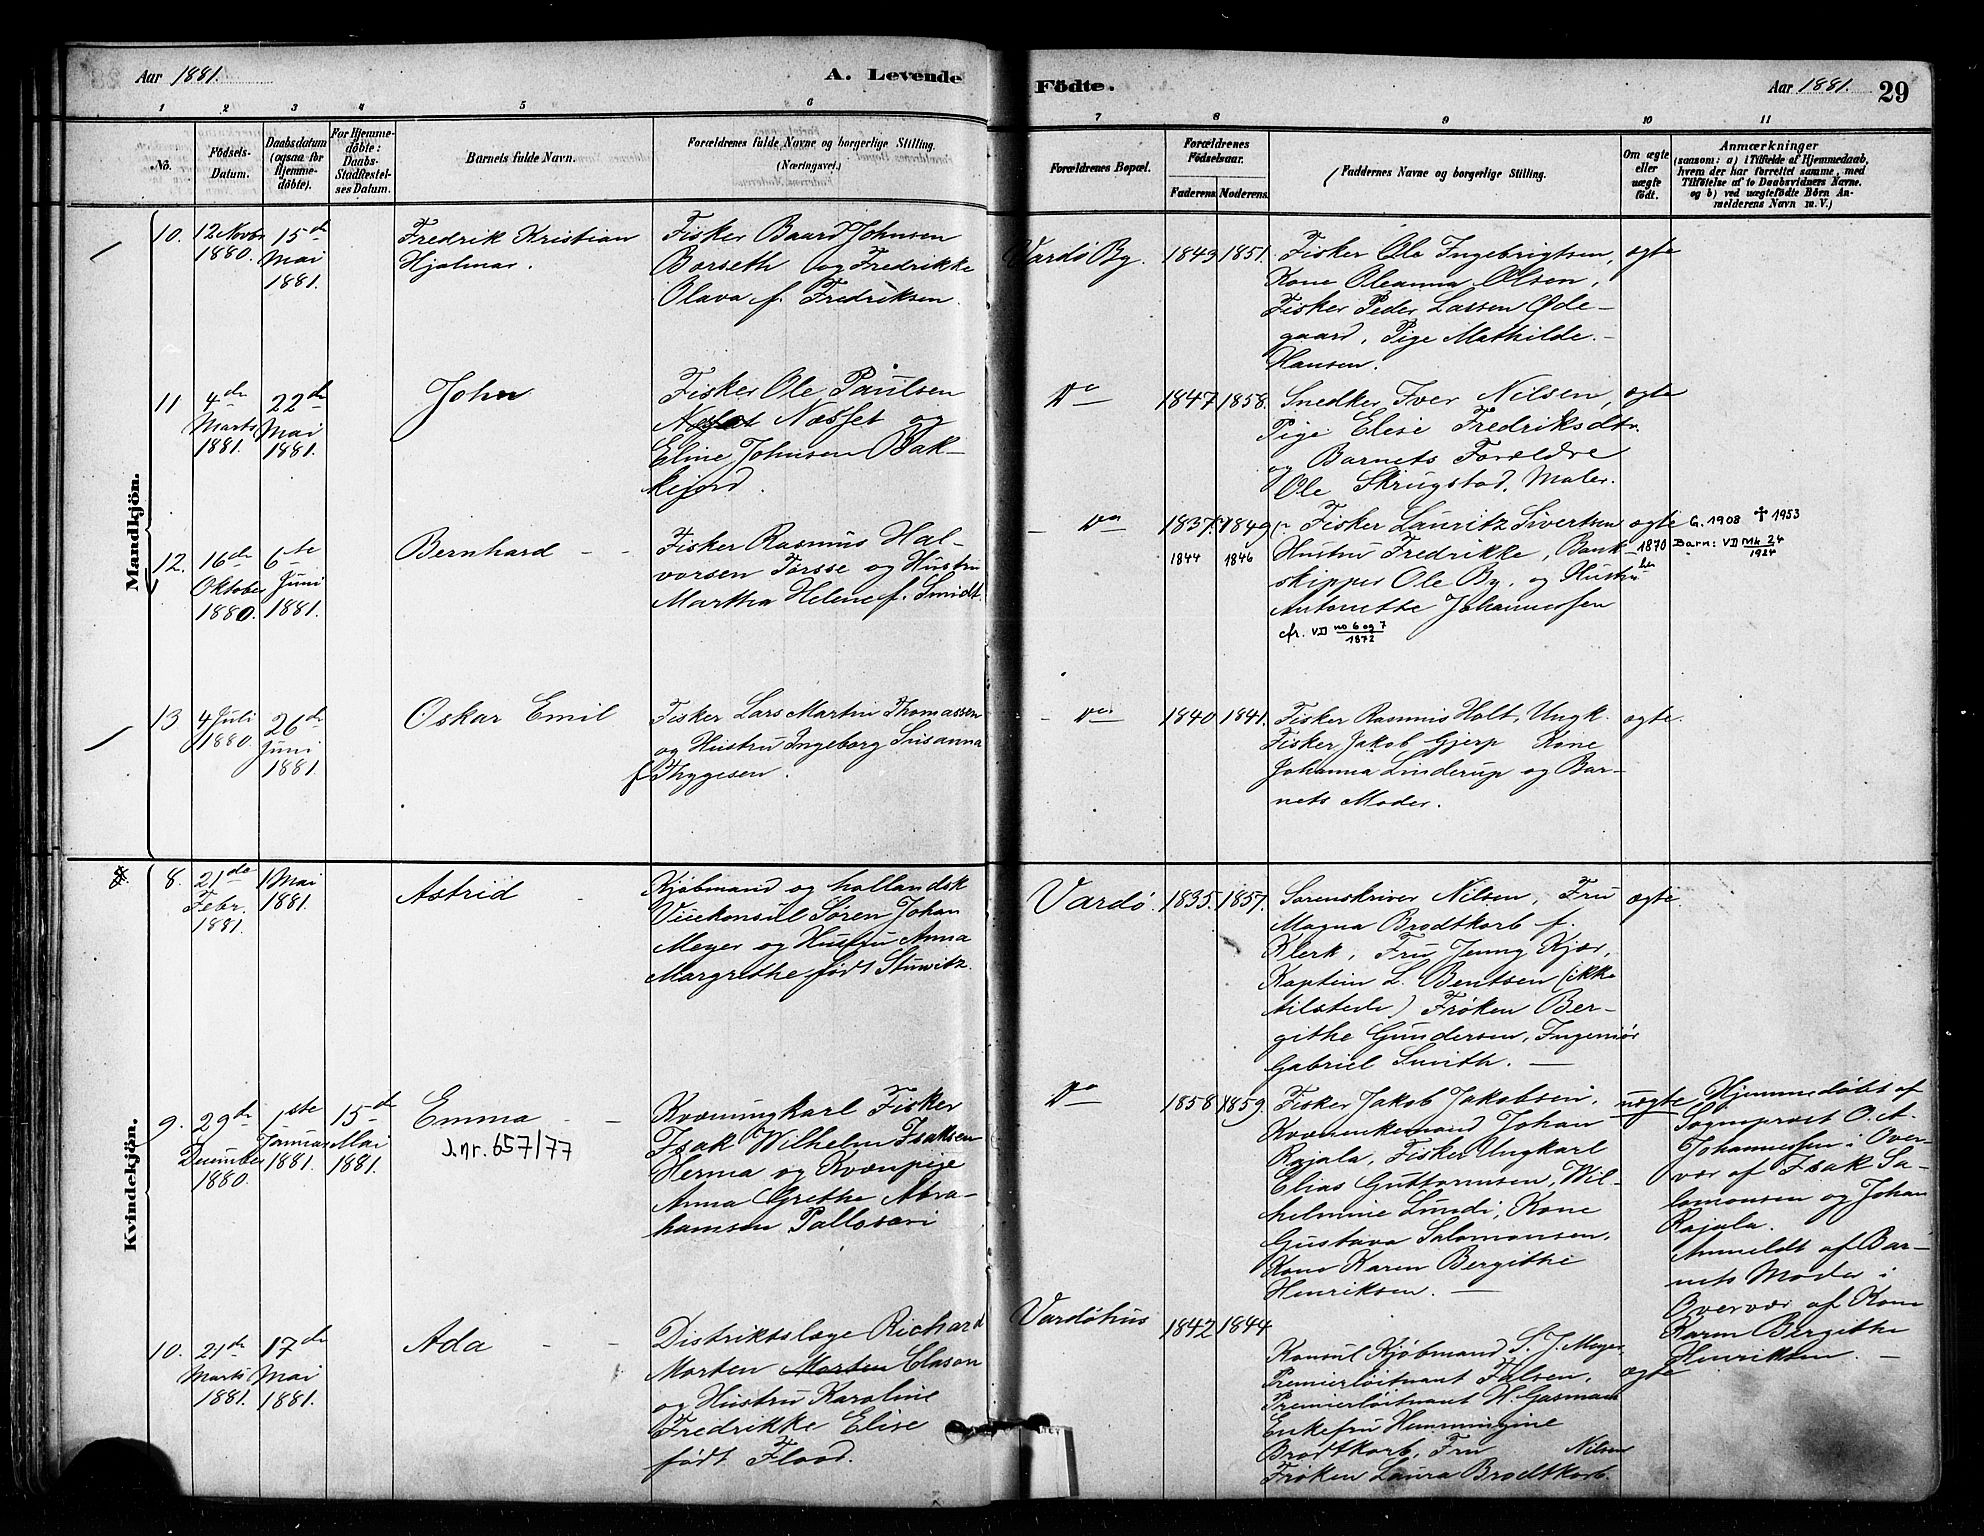 Aar 1881.
A. Levende
1 2 3 4 5 6
Nō.
Födsels-
Datum.
Daabsdatum
(ogsaa for
Hjemme-
döbte).
For Hjemme-
döbte:
Daabs-
Stadfæstel-
ses Datum.
Barnets fulde Navn.
Forældrenes fulde Navne og borgerlige Stilling.
(Næringsvei.)
Mandkjön.
10.
12 Novbr
1880.
15de
Mai
1881.
Fredrik Kristian
Hjalmar.
Fisker Baard Johnsen
Borseth og Fredrikke
Olava f. Fredriksen.
11
4de
Marts
1881.
22de
Mai
1881.
John
Fisker Ole Paulsen
Næsset og
Eline Johnsen Bak-
kejord.
12.
16de
Oktober
1880.
6te
Juni
1881.
Bernhard
Fisker Rasmus Hal-
vorsen Torsse og Hustru
Martha Helene f. Smidt.
13
4 Juli
1880.
26de
Juni
1881.
Oskar Emil
Fisker Lars Martin Thomassen
og Hustru Ingeborg Susanna
f Thygesen.
Kvindekjön.
8.
21de
Febr.
1881.
1 Mai
1881.
Astrid
Kjøbmand og hollandsk
Vicekonsul Søren Johan
Meyer og Hustru Anna
Margrethe født Stuwitz.
9.
29de
December
1880.
1ste
Januar
1881.
15de
Mai
1881.
Emma
J.nr. 657/77
Kvæningkarl Fisker
Isak Wilhelm Isaksen
Herma og Kvænpige
Anna Grethe Abra-
hamsen Pallosari
10.
21de
Marts
1881.
17de
Mai
1881.
Ada
Distriktslæge Richard
Morten Morten Clason
og Hustru Karoline
Fredrikke Elise
født Flood.
Födte.
Aar 1881.
29
7 8 9 10 11
Forældrenes Bopæl.
Forældrenes
Födselsaar.
Faderens. Moderens.
Faddernes Navne og borgerlige Stilling.
Om ægte
eller
uægte
födt.
Anmærkninger
(saasom: a) i Tilfælde af Hjemmedaab,
hvem der har forrettet samme, med
Tilföielse af to Daabsvidners Navne.
og b) ved uægtefödte Börn An-
melderens Navn m. V.)
Vardö By.
1843
1851.
Fisker Ole Ingebrigtsen,
Kone Oleanna Olsen,
Fisker Peder Lassen Øde-
gaard, Pige Mathilde
Hansen.
ægte
Do
1847
1858.
Snedker Iver Nilsen,
Pige Elise Fredriksdtr.
og Barnets Forældre
Ole Skrugstad, Maler.
ægte
Do
1837.
1849
1844
1846
Fisker Lauritz Sivertsen
Hustru Fredrikke, Bank-
skipper Ole By, og Hustru
Antonette Johannessen
cfr. VD no 6 og 7
1872
ægte
1870
G. 1908 ✝ 1953
Barn: VD Mk 24
1924
Do
1840
1841.
Fisker Rasmus Holt, Ungk.
Fisker Jakob Gjerp Kone
Johanna Linderup og Bar-
nets Moder.
ægte.
Vardø.
1835.
1857.
Sorenskriver Nilsen, Fru
Magna Brodtkorb f.
Klerk, Fru Jenny Kjær,
Kaptein L. Bentsen (ikke
tilstede) Frøken Ber-
githe Gundersen, Ingeniør
Gabriel Smith.
ægte.
Do
1858
1859.
Fisker Jakob Jakobsen,
Kvænenkemand Johan
Rajala, Fisker Ungkarl
Elias Guttormsen, Wil-
helmine Lundi, Kone
Gustava Salomonsen,
Kone Karen Bergithe
Henriksen.
uægte
Hjemmedøbt af
Sogneprost O. A.
Johannessen i Over-
vær af Isak Sa-
lomonsen og Johan
Rajala.
Anmeldt af Bar-
nets Moder i
Overvær af Kone
Karen Bergithe
Henriksen.
Vardøhus
1842
1844
Konsul Kjøbmand S. J. Meyer,
Premierløitnant Falsen,
Premierløitnant H. Gasmann
Enkefru Hemmingine
Brodtkorb, Fru Nilsen
Frøken Laura Brodtkorb.
ægte